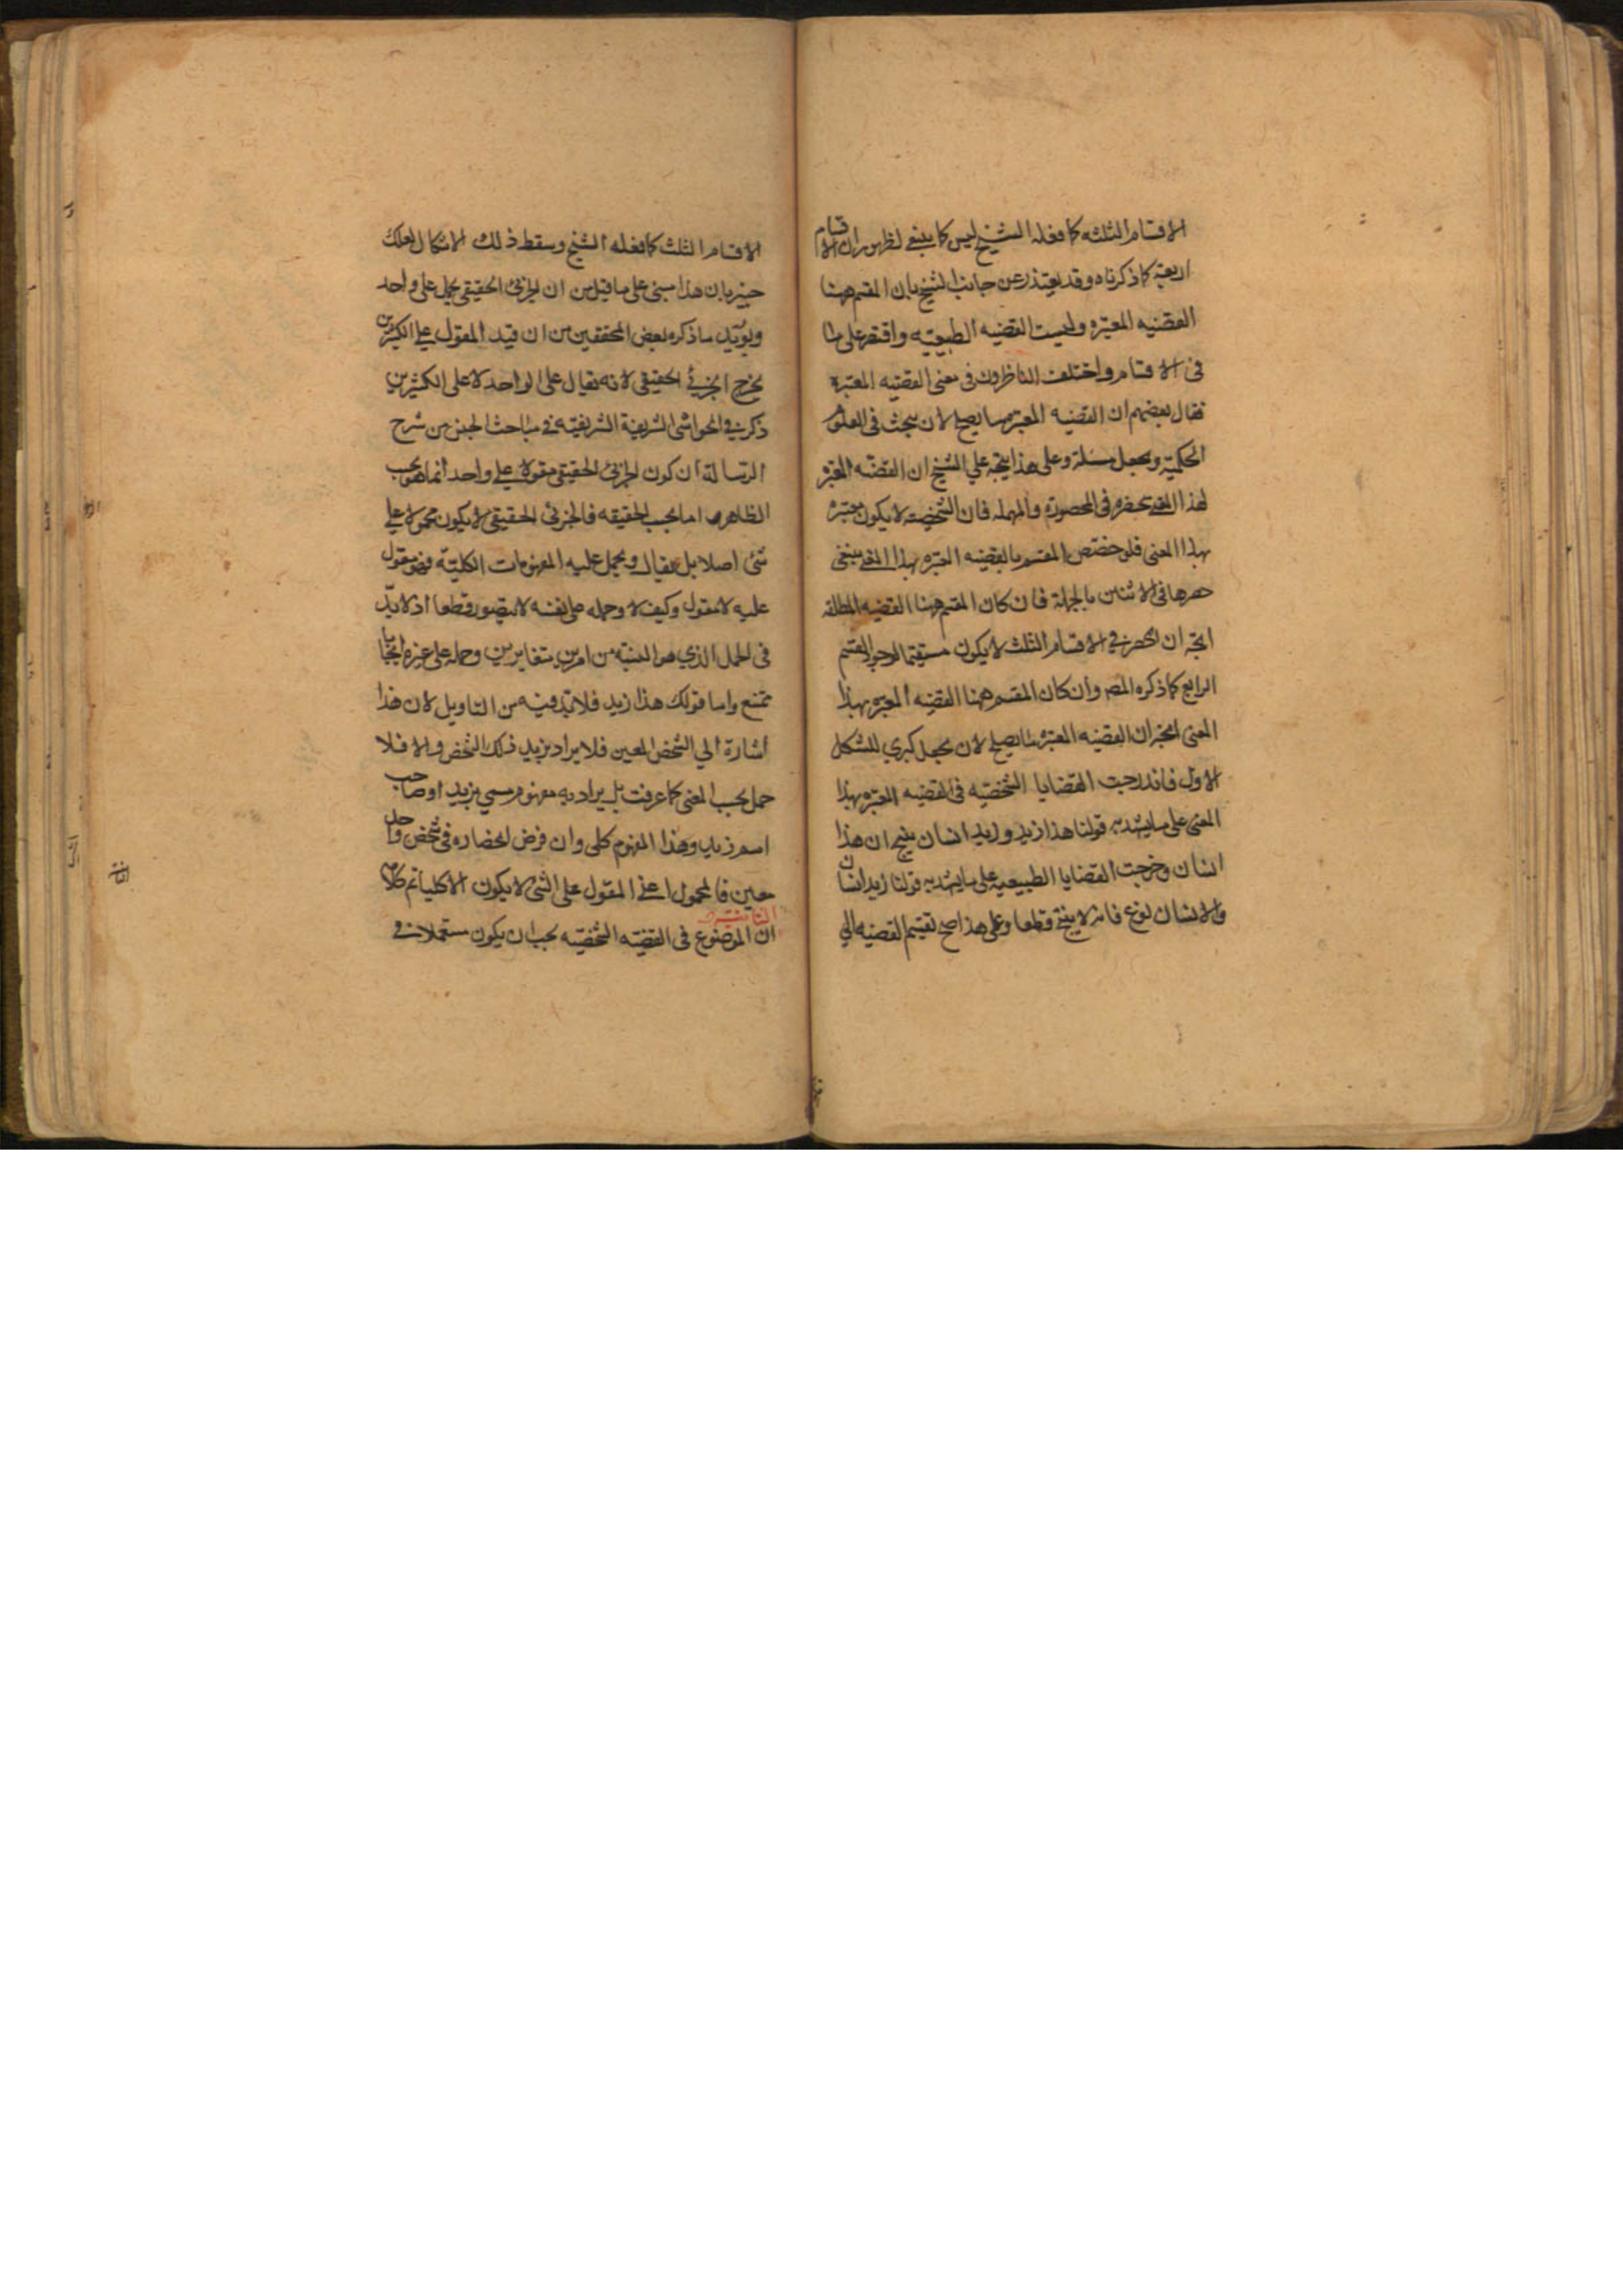 الاقسام الثلثه كما فعله الشيخ ليس كما ينبغي لظهور ان الاقسام
اربعة كما ذكرناه وقد يعتذر عن جانب الشيخ بان المقسم ههنا
القضيه المعتبره وليست القضيه الطبيعيه واقتصر على
فى الاقسام واختلف الناظرون فى معنى القضيه المعتبرة
فقال بعضهم ان القضيه المعتبره ما يصلح لان يبحث فى العلوم
الحكمية ويجعل مسئلة وعلى هذا يتجه علي الشيخ ان القضيه المعتبره
لهذا المعنى منحصره فى المحصوره والمهمله فان الشخصية لا يكون معتبره
بهذا المعنى فلو خصص المقسم بالقضيه المعتبره بهذا المعنى ينبغى
حصرها فى الاثنين بالجملة فان كان المقسم ههنا القضيه المطلقه
اتجه ان الحصر فى الاقسام الثلث لا يكون مستقيما لوجود القسم
الرابع كما ذكره المصر وان كان المقسم ههنا القضيه المعتبره بهذا
المعنى ان القضيه المعتبره ما يصلح لان يجعل كبري للشكل
الاول فاندرجت القضايا الشخصيه فى القضيه المعتبره بهذا
المعنى على ما يشهد به قولنا هذا زيد وزيد انسان ينتج ان هذا
انسان وخرجت القضايا الطبيعيه على ما يشهد به قولنا زيد انسان
والانسان نوع فانه لا ينتج قطعا وعلى هذا صح تقسيم القضيه الي
الاقسام الثلث كما فعله الشيخ وسقط ذلك الاشكال لعلك
خبير بان هذا مبنى على ما قيل من ان الجزئى الحقيقى يحمل على واحد
ويؤيد ما ذكره بعض المحققين من ان قيد المقول علي الكثيرين
يخرج الجزئي الحقيقى لانه يقال على الواحد لا على الكثيرين
ذكر فى الحواشى الشريفة الشريفيه فى مباحث الجنس من شرح
الرسالة ان كون الجزئى الحقيقى مقولا علي واحد انما هو بحسب
الظاهر اما بحسب الحقيقه فالجزئى الحقيقى لا يكون محمولا علي
شئ اصلا بل يقال ويحمل عليه المفهومات الكلية فهو مقول
عليه لا مقول وكيف لا وحمله على نفسه لا يتصور قطعا اذ لا بد
فى الحمل الذي هو النسبة من امرين متغايرين وحمله على غيره ايجابا
ممتنع واما قولك هذا زيد فلا بد فيه من التاويل لان هذا
اشارة الي الشخص المعين فلا يراد بزيد ذلك الشخص والا فلا
حمل بحسب المعنى كما عرفت بل يراد به مفهوم مسمي بزيد او صاحب
اسم زيد وهذا المفهوم كلى وان فرض انحصاره فى شخص واحد
معين فالمحمول اعنى المقول على الشئ لا يكون الا كليا تم كلامه
ان الموضوع فى القضيه الشخصيه يجب ان يكون مستعملا فى